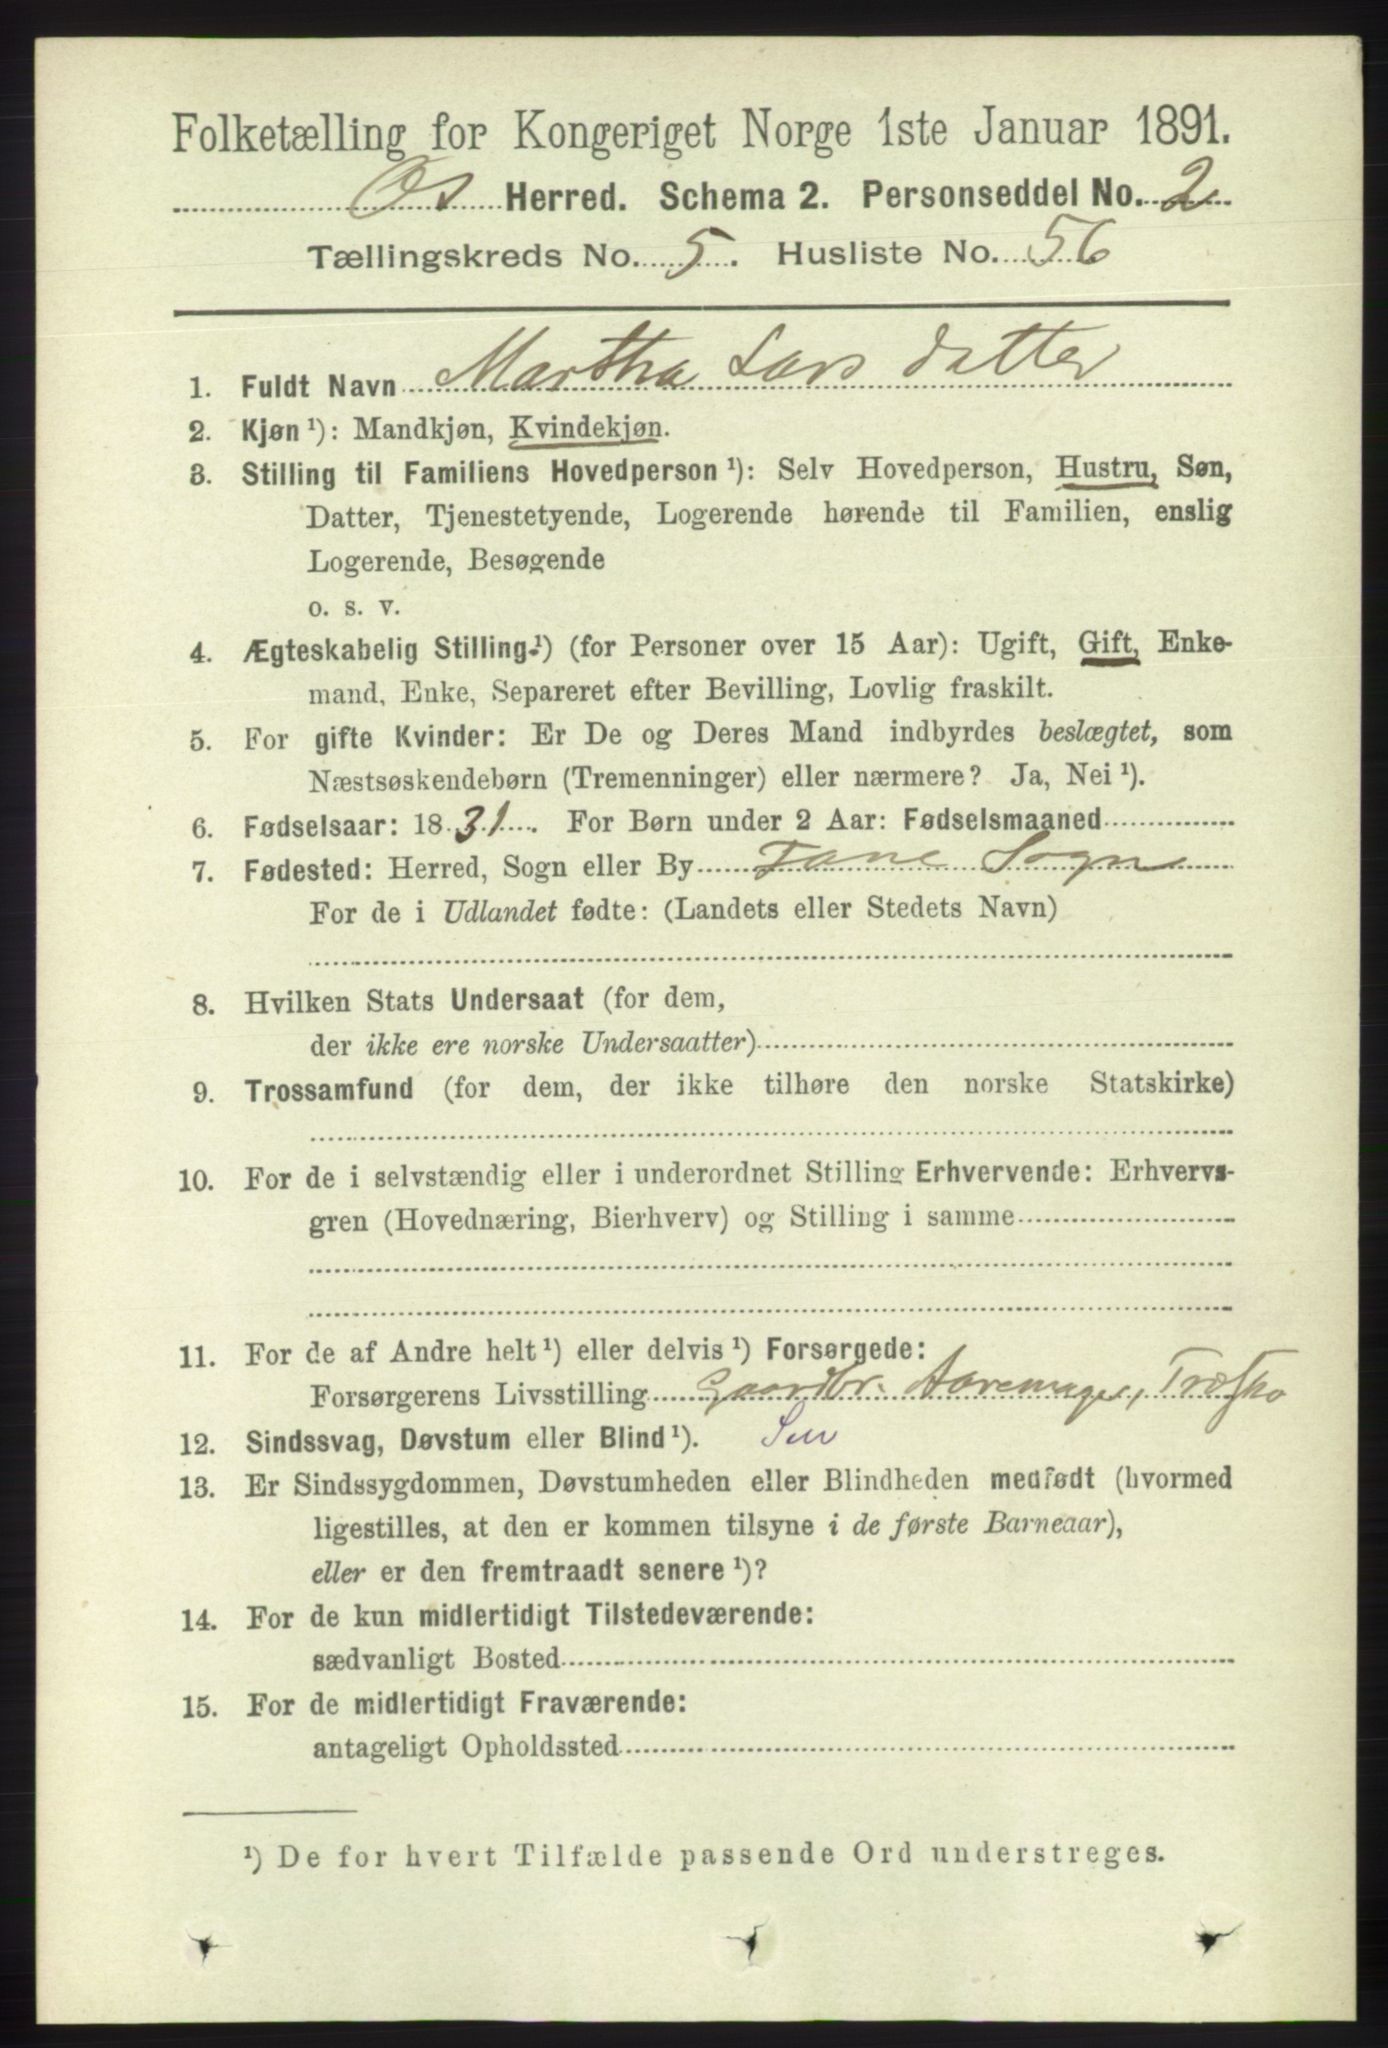 Folketælling for Kongeriget Norge 1ste Januar 1891.
Os Herred. Schema 2. Personseddel No. 2
Tællingskreds No. 5. Husliste No. 56
1. Fuldt Navn Martha Larsdatter
2. Kjøn ¹): Mandkjøn, Kvindekjøn.
3. Stilling til Familiens Hovedperson ¹): Selv Hovedperson, Hustru, Søn,
Datter, Tjenestetyende, Logerende hørende til Familien, enslig
Logerende, Besøgende
o. s. v.
4. Ægteskabelig Stilling ¹) (for Personer over 15 Aar): Ugift, Gift, Enke-
mand, Enke, Separeret efter Bevilling, Lovlig fraskilt.
5. For gifte Kvinder: Er De og Deres Mand indbyrdes beslægtet, som
Næstsøskendebørn (Tremenninger) eller nærmere? Ja, Nei ¹).
6. Fødselsaar: 1831. For Børn under 2 Aar: Fødselsmaaned
7. Fødested: Herred, Sogn eller By Fane Sogn
For de i Udlandet fødte: (Landets eller Stedets Navn)
8. Hvilken Stats Undersaat (for dem,
der ikke ere norske Undersaatter)
9. Trossamfund (for dem, der ikke tilhøre den norske Statskirke)
10. For de i selvstændig eller i underordnet Stilling Erhvervende: Erhvervs-
gren (Hovednæring, Bierhverv) og Stilling i samme
11. For de af Andre helt ¹) eller delvis ¹) Forsørgede:
Forsørgerens Livsstilling Gaardbr. Aaremager, Træsko
12. Sindssvag, Døvstum eller Blind ¹).
13. Er Sindssygdommen, Døvstumheden eller Blindheden medfødt (hvormed
ligestilles, at den er kommen tilsyne i de første Barneaar),
eller er den fremtraadt senere ¹)?
14. For de kun midlertidigt Tilstedeværende:
sædvanligt Bosted
15. For de midlertidigt Fraværende:
antageligt Opholdssted
¹) De for hvert Tilfælde passende Ord understreges.